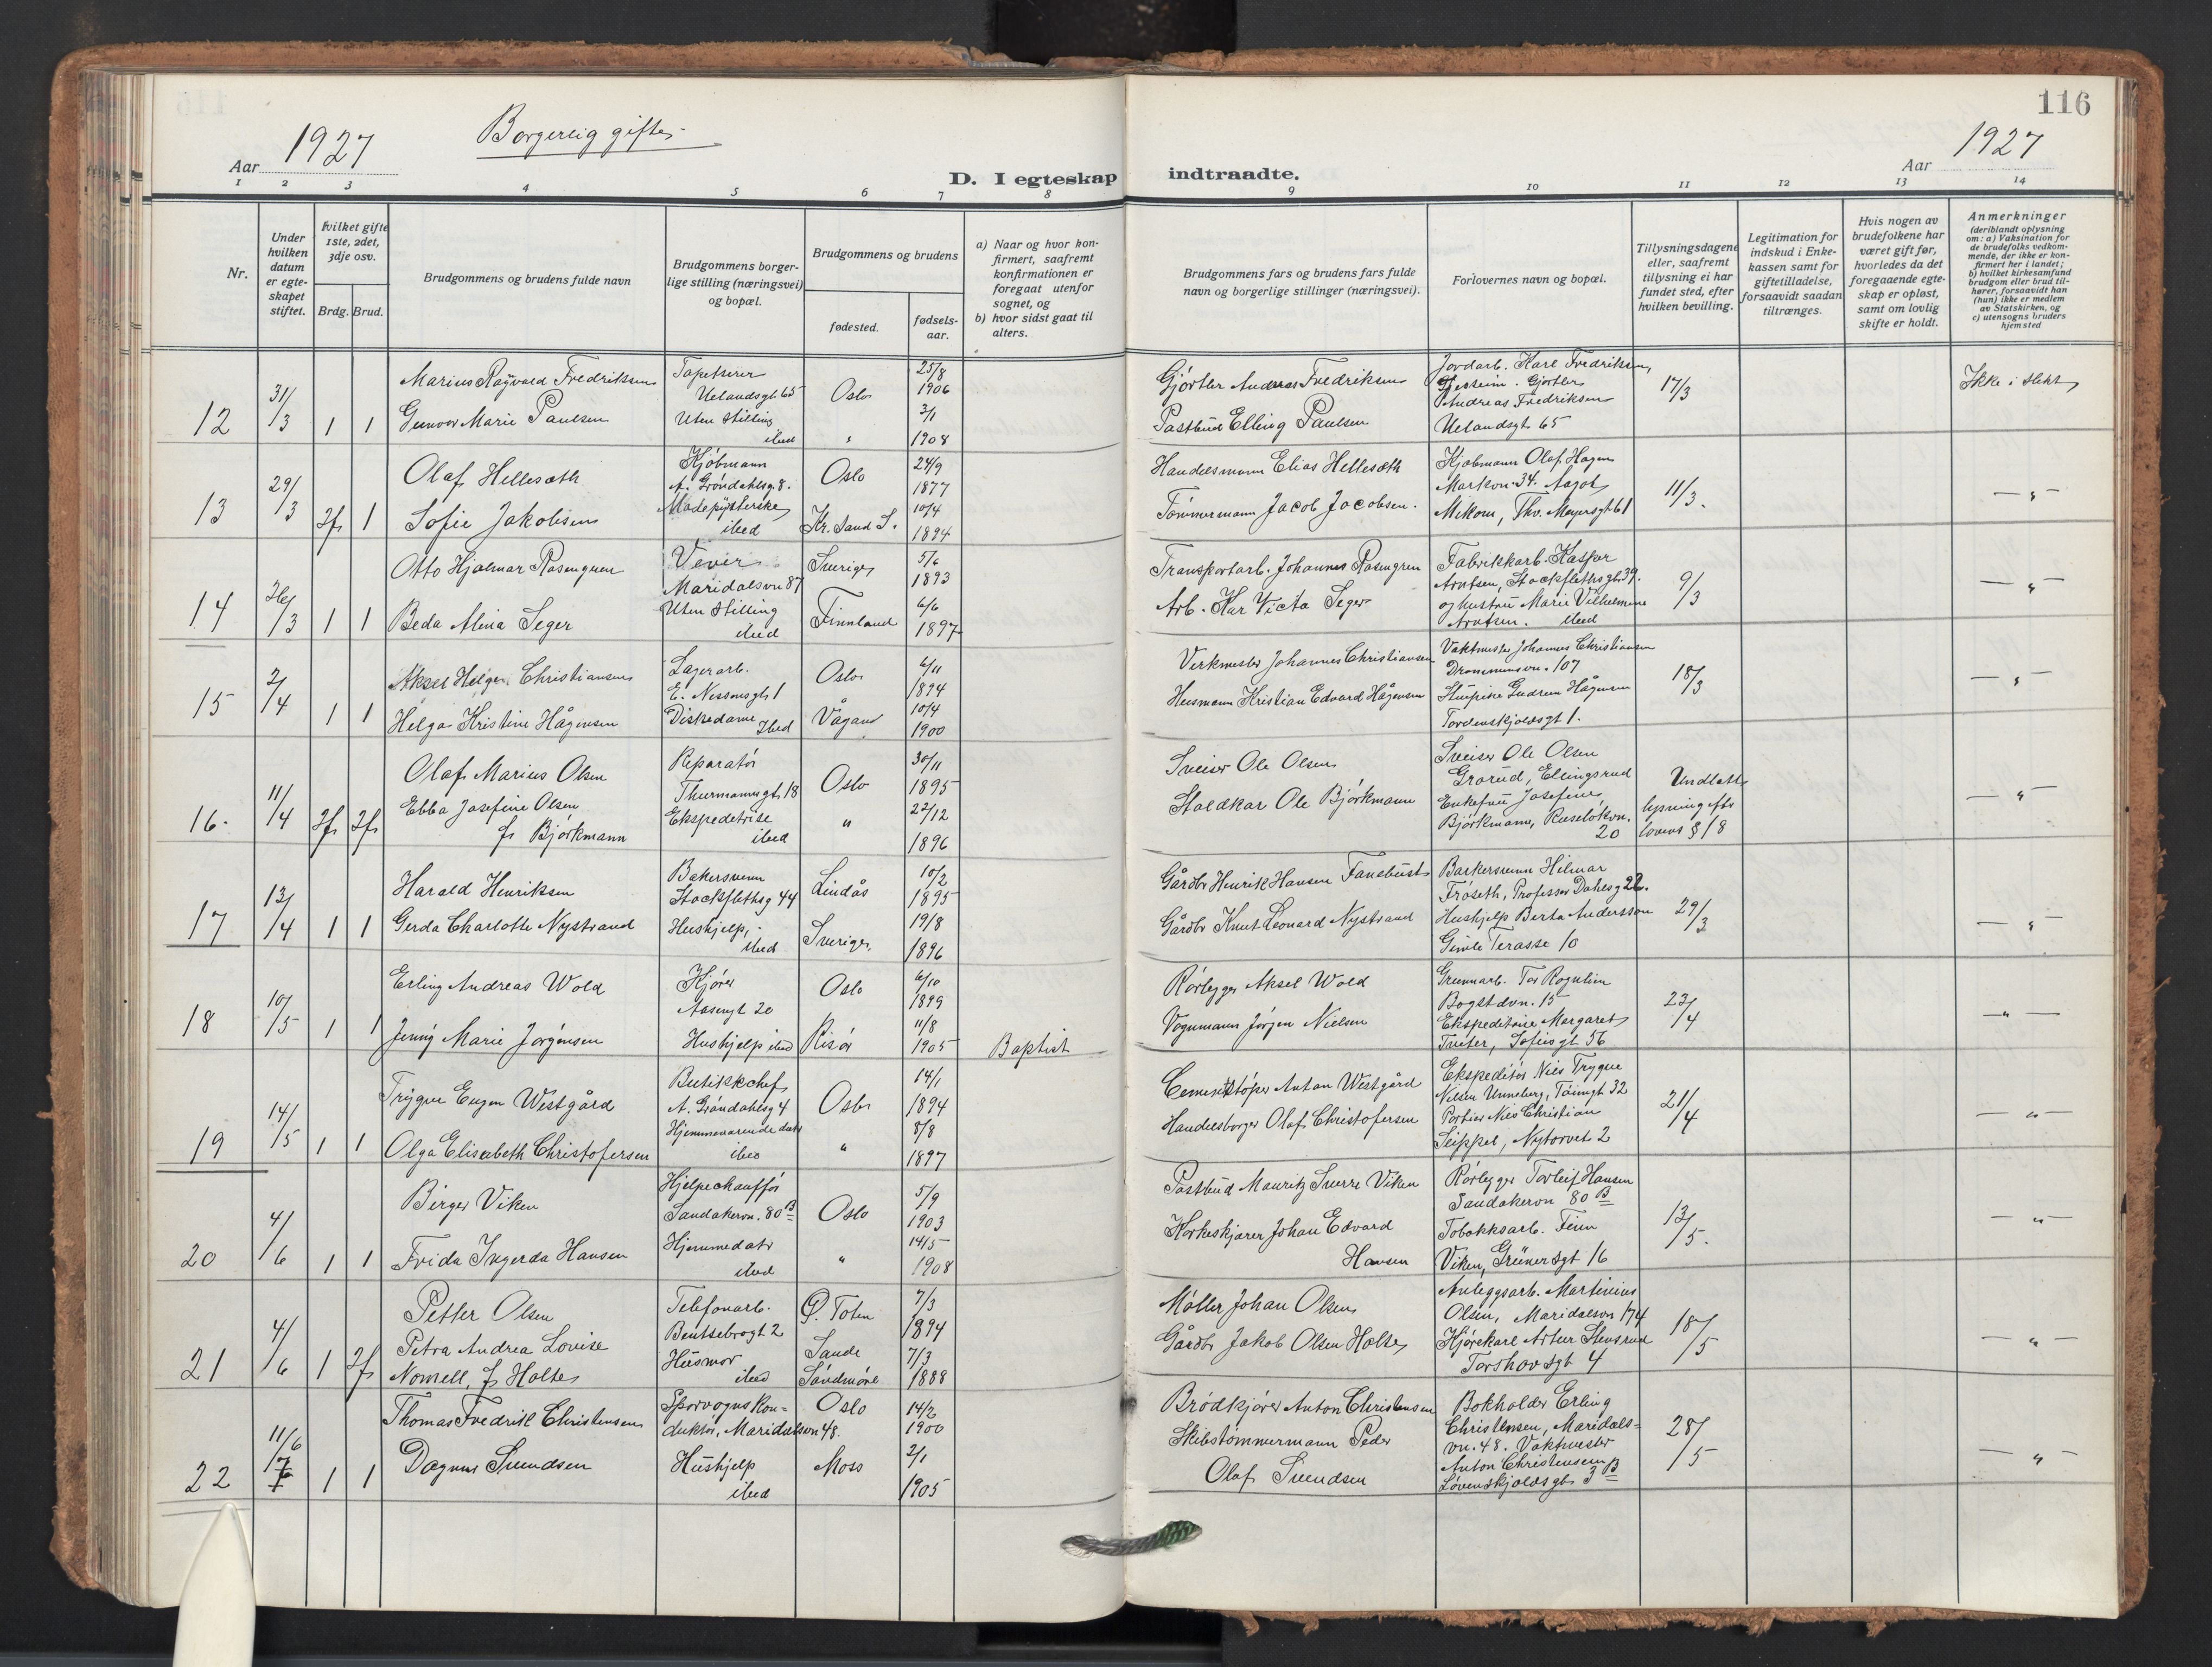 116
1927
Borgerlig gifte
1927
Aar
D. I egteskap
indtraadte.
Aar
1 2 3 4 5 6 7 8 9 10 11 12 13 14
Nr.
Under hvilken datum er egteskapet stiftet.
Hvilket gifte 1ste, 2det, 3dje osv.
Brdg. Brud.
Brudgommens og brudens fulde navn
Brudgommens borgerlige stilling (næringsvei) og bopæl.
Brudgommens og brudens
fødested.
fødselsaar.
a) Naar og hvor konfirmert, saafremt konfirmationen er foregaat utenfor sognet, og
b) hvor sidst gaat til alters.
Brudgommens fars og brudens fars fulde navn og borgerlige stillinger (næringsvei).
Forlovernes navn og bopæl.
Tillysningsdagene eller, saafremt tillysning ei har fundet sted, efter hvilken bevilling.
Legitimation for indskud i Enkekassen samt for giftetilladelse, forsaavidt saadan tiltrænges.
Hvis nogen av brudefolkene har været gift før, hvorledes da det foregaaende egteskap er opløst, samt om lovlig skifte er holdt.
Anmerkninger
(deriblandt oplysning om: a) Vaksination for de brudefolks vedkommende, der ikke er konfirmert her i landet; b) hvilket kirkesamfund brudgom eller brud tilhører, forsaavidt han (hun) ikke er medlem av Statskirken, og c) utensogns bruders hjemsted
12 31/3 1 1
Marius Ragvald Fredriksen
Gunvor Marie Paulsen
Tapetserer
Uelandsgt. 65
Uten stilling
ibid
Oslo
"
25/8
1906
3/1
1908
Gjørtler Andreas Fredriksen
Postbud Elling Paulsen
Jordarb. Karl Fredriksen,
Jessheim. Gjørtler
Andreas Fredriksen
Uelandsgt 65
17/3
Ikke i slekt
13 29/3 2f 1
Olaf Hellesæth
Sofie Jakobsen
Kjøbmann
A. Grøndahlsg. 8.
Modepynterske
ibid
Oslo
Kr. Sand S.
24/9
1877
10/4
1894
Handelsmann Elias Hellesæth
Tømmermann Jacob Jacobsen.
Kjøbmann Olaf Hagen
Markvn. 34. Aagot
Mikom, Thv. Meyersgt 61
11/3.
— " —
14 26/3 1 1
Otto Hjalmar Rosengren
Beda Alina Seger
Vever
Maridalsvn 87
Uten stilling
ibid
Sverige
Finnland
5/6
1893
6/6
1897
Transportarb. Johannes Rosengren
Arb. Kar Victa Seger
Fabrikkarb. Kaspar
Arntsen, Stockflethsgt. 39.
og hustru Marie Vilhelmine
Arntsen. ibid
9/3
— " —
15 2/4 1 1
Aksel Helge Christiansen
Helga Kristine Hågensen
Lagerarb.
E. Nessesgt. 1
Diskedame
Ibid
Oslo
Vågan
6/11
1894
10/4
1900
Verkmester Johannes Christiansen
Husmann Kristian Edvard Hågensen
Vaktmester Johannes Christiansen
Drammensvn. 107
Stuepike Gudrun Hågensen
Tordenskjoldsgt 1.
18/3
— " —
16. 11/4 2f 2f
Olaf Marius Olsen
Ebba Josefine Olsen
f. Bjørkmann
Reparatør
Thurmannsgt. 18
Ekspeditrise
ibid
Oslo
"
30/11
1895
22/12
1896
Sveiser Ole Olsen
Stallkar Ole Bjørkmann
Sveiser Ole Olsen
Grorud, Ellingsrud
Enkefru Josefine
Bjørkmann, Ruseløkvn.
20
Undlatt
lysning efter
lovens § 18
— " —
17 13/4 1 1
Harald Henriksen
Gerda Charlotte Nystrand
Bakersvenn
Stockflethsg 44
Hushjelp,
ibid
Lindås
Sverige
10/2
1895
19/8
1896
Gårdbr Henrik Hansen
Gårdbr Knut Leonard Nystrand
Bakersvenn Hilmar
Frøseth, Professor Dahlsg 22.
Hushjelp Berta Andersson
Gimle Terasse 10
29/3
— " —
18 10/5 1 1
Erling Andreas Wold
Jenny Marie Jørgensen
Kjører
Aasengt 20
Hushjelp ibid
Oslo
Risør
6/10
1899
11/8
1905
Baptist
Rørlegger Aksel Wold
Vognmann Jørgen Nielsen
Grunnarb. Tor Rognlien
Bogstdvn. 15
Ekspeditrise Margaret
Tveter, Sofiesgt 56
23/4
— " —
19 14/5 1 1
Trygve Eugen Westgård
Olga Elisabeth Christofersen
Butikkchef
A. Grøndahlsg 4
Hjemmeværende datr
ibid
Oslo
"
14/1
1894
8/8
1897
Cementstøper Anton Westgård
Handelsborger Olaf Christofersen
Ekspeditør Nils Trygve
Nilsen Unneberg, Tøiengt 32
Portier Nils Christian
Seippel, Nytorvet 2
21/4
— " —
20 4/6 1 1
Birger Viken
Frida Ingerda Hansen
Hjelpechauffør
Sandakervn. 80 B
Hjemmedatr
ibid
Oslo
"
5/9
1903
14/5
1908
Postbud Mauritz Sverre Viken
Korkeskjærer Johan Edvard
Hansen
Rørlegger Torleif Hansen
Sandakervn 80 B
Tobakksarb. Finn
Viken, Grünersgt 16
13/5.
— " —
21 4/6 1 2f
Petter Olsen
Petra Andrea Lovise
Nomell, f. Holte
Telefonarb.
Bentsebrogt. 2
Husmor
ibid
Ø. Toten
Sande
Søndmøre
7/3
1894
7/3
1888
Møller Johan Olsen
Gårdbr Jakob Olsen Holte
Anleggsarb. Martinius
Olsen, Maridalsvn 174
Kjørekarl Artur Stensrud
Torshovsgt 4
18/5
— " —
22 11/6 1 1
Thomas Fredrik Christensen
Dagmar Svendsen
Sporvogns Kon=
duktør, Maridalsvn 48.
Hushjelp
ibid
Oslo
Moss
14/2
1900
2/1
1905
Brødkjører Anton Christensen
Skibstømmermann Peder
Olaf Svendsen
Bokholder Erling
Christensen, Maridals=
vn. 48. Vaktmester
Anton Christensen
Løvenskjoldsgt. 3 B
28/5
— " —